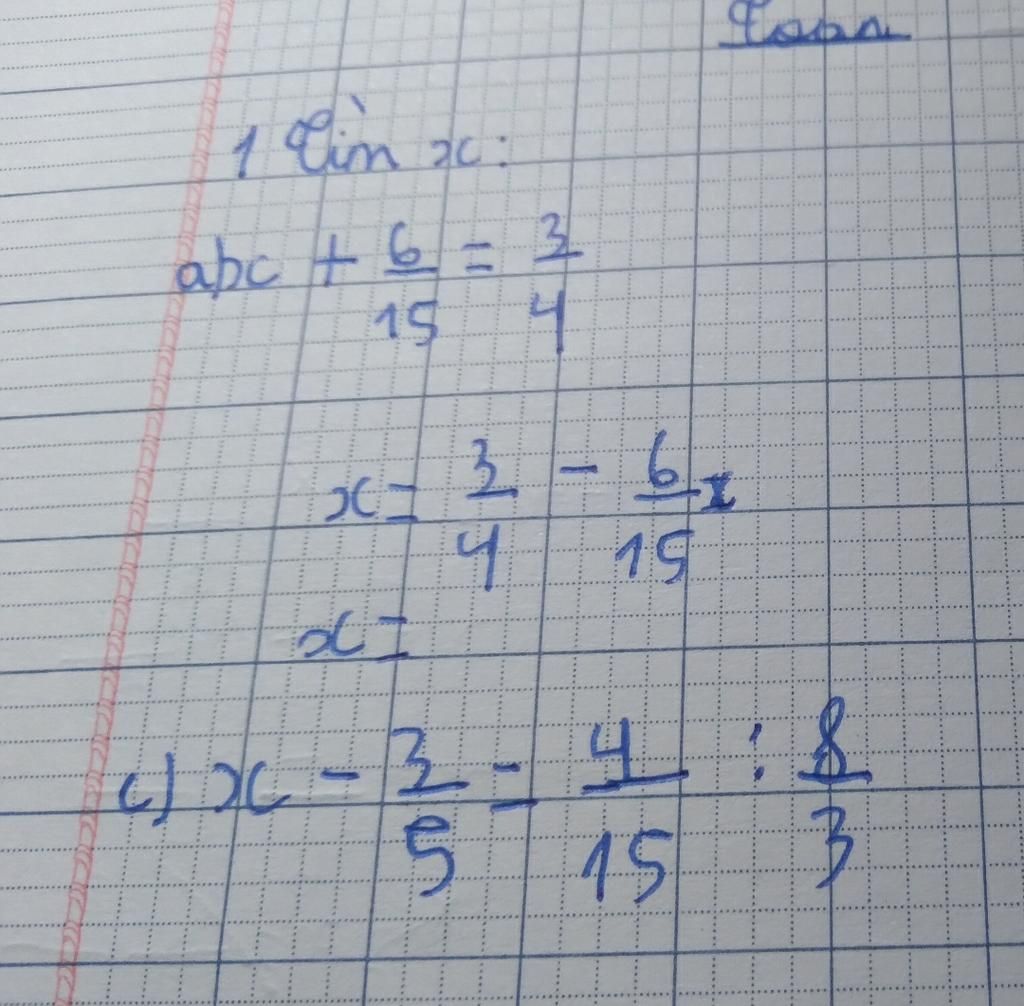 Toán
1 Tìm x:
abc + 6/15 = 3/4
x = 3/4 - 6/15
x =
c) x - 3/5 = 4/15 : 8/3